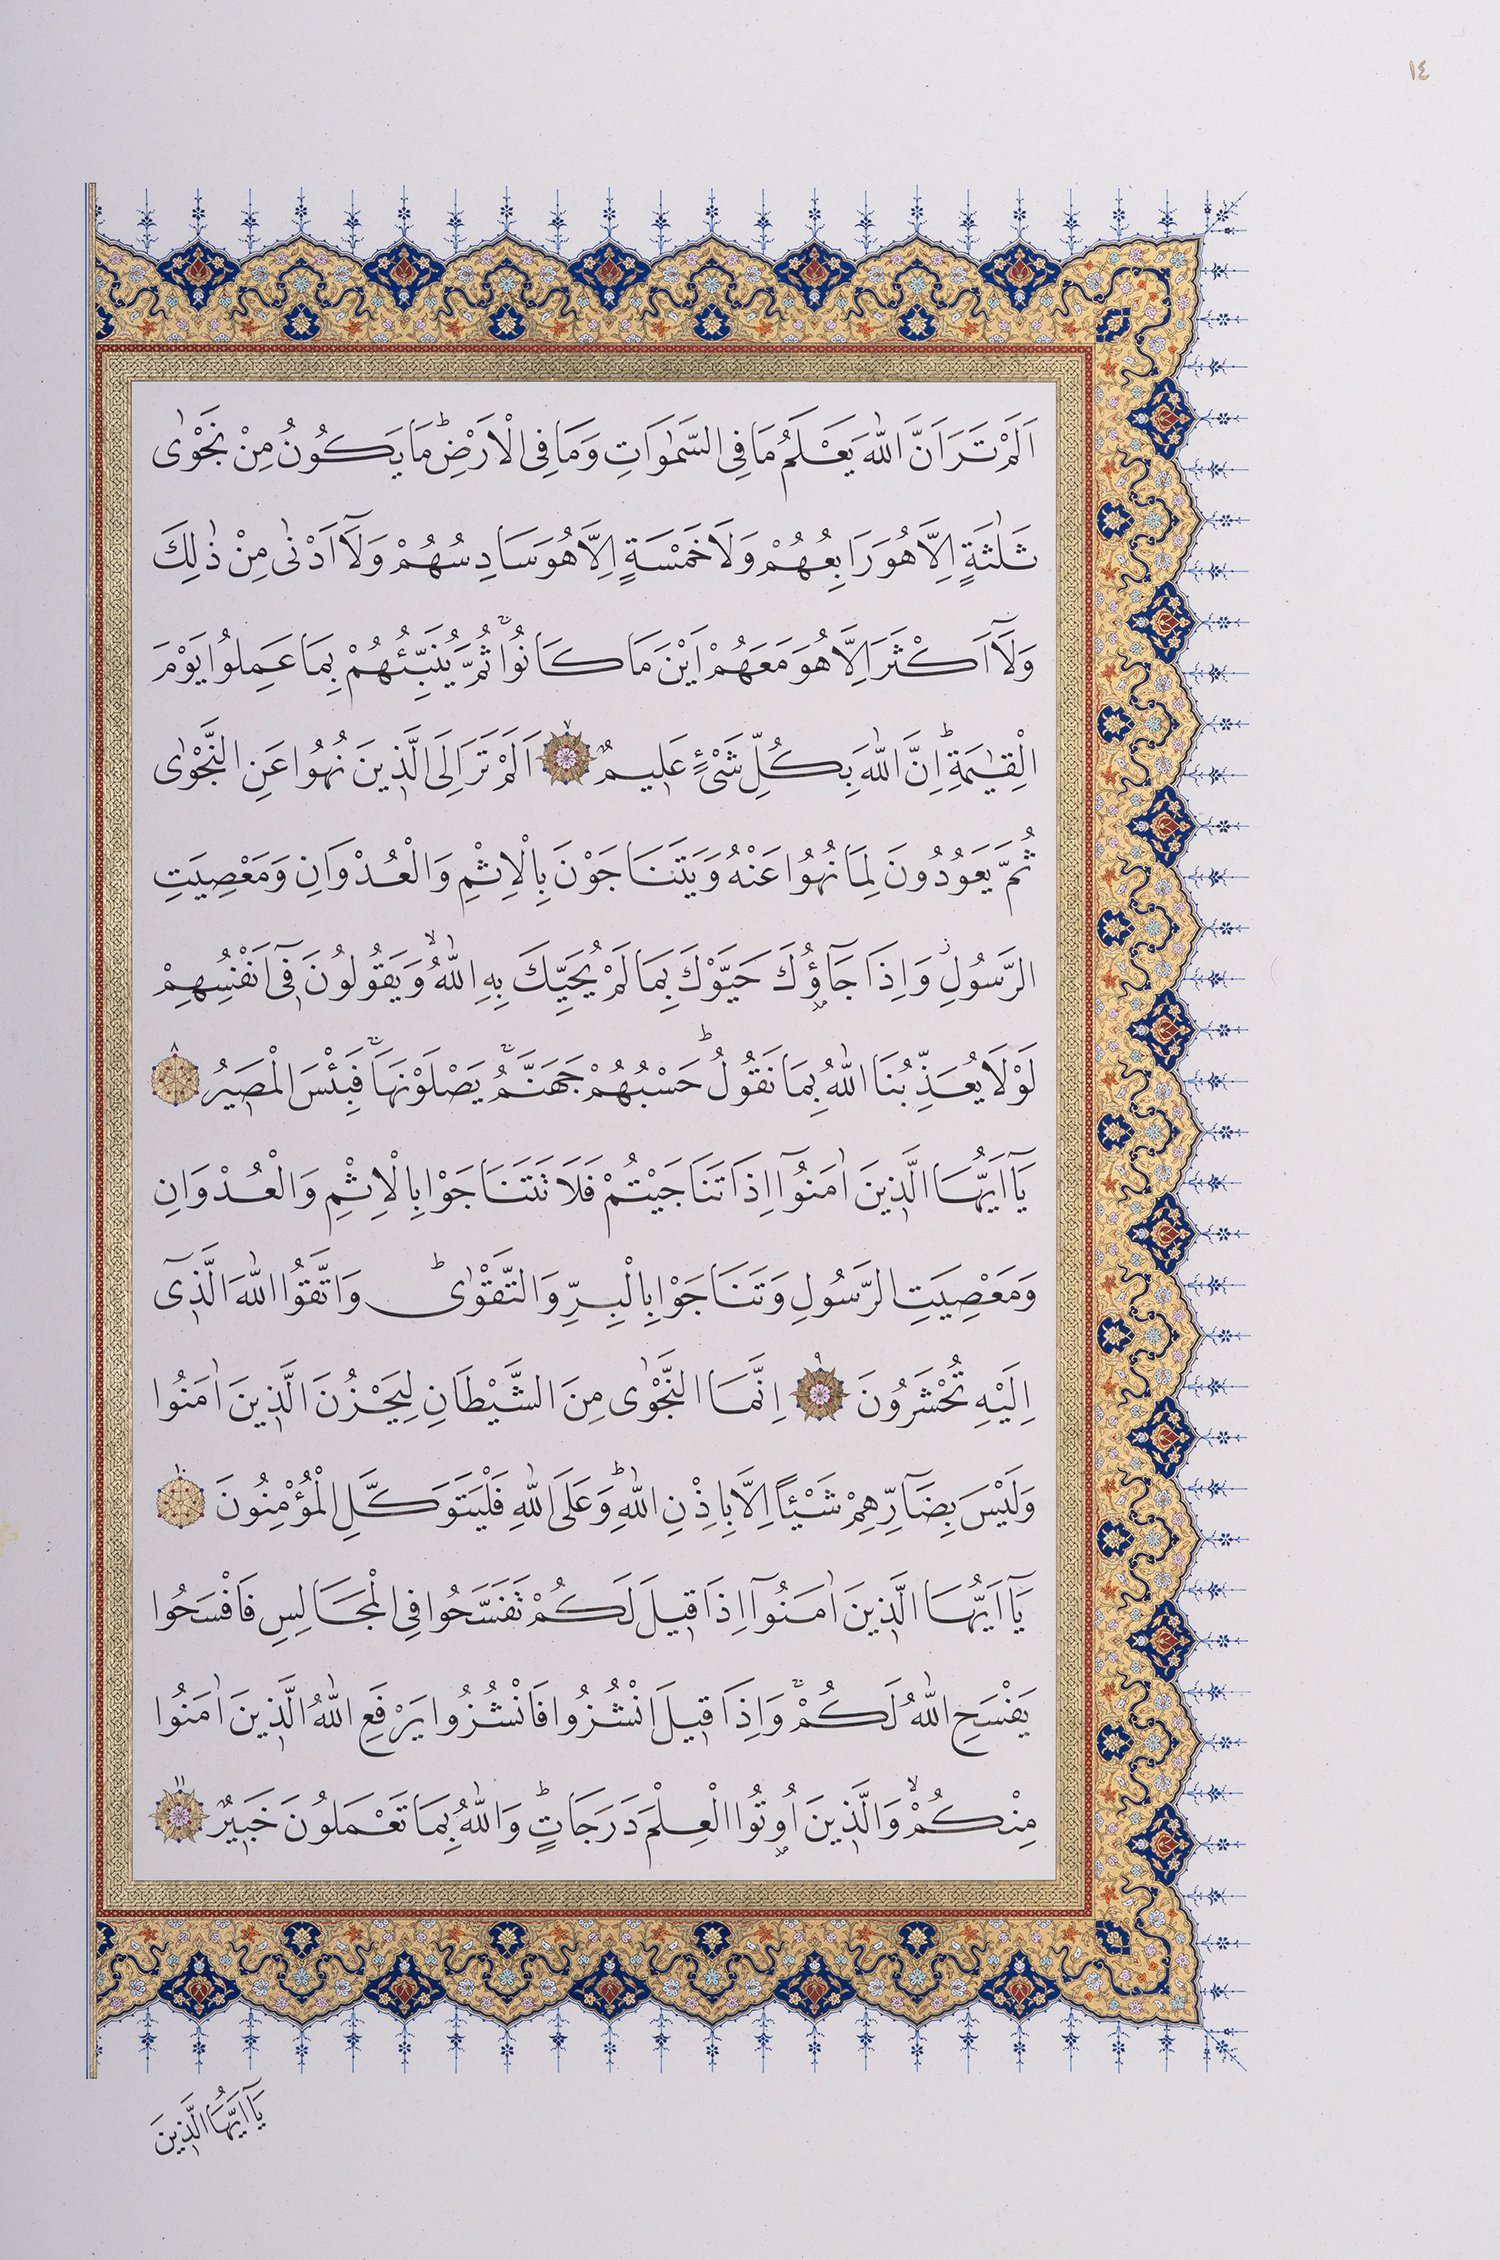 ١٤
اَلَمْ تَرَ اَنَّ اللّٰهَ يَعْلَمُ مَا فِى السَّمٰوَاتِ وَمَا فِى الْاَرْضِۜ مَا يَكُونُ مِنْ نَجْوٰى
ثَلٰثَةٍ اِلَّا هُوَ رَابِعُهُمْ وَلَا خَمْسَةٍ اِلَّا هُوَ سَادِسُهُمْ وَلَٓا اَدْنٰى مِنْ ذٰلِكَ
وَلَٓا اَكْثَرَ اِلَّا هُوَ مَعَهُمْ اَيْنَ مَا كَانُواۚ ثُمَّ يُنَبِّئُهُمْ بِمَا عَمِلُوا يَوْمَ
الْقِيٰمَةِۜ اِنَّ اللّٰهَ بِكُلِّ شَىْءٍ عَلِيمٌ ٧ اَلَمْ تَرَ اِلَى الَّذِينَ نُهُوا عَنِ النَّجْوٰى
ثُمَّ يَعُودُونَ لِمَا نُهُوا عَنْهُ وَيَتَنَاجَوْنَ بِالْاِثْمِ وَالْعُدْوَانِ وَمَعْصِيَتِ
الرَّسُولِۘ وَاِذَا جَٓاؤُ۫كَ حَيَّوْكَ بِمَا لَمْ يُحَيِّكَ بِهِ اللّٰهُۙ وَيَقُولُونَ فِٓى اَنْفُسِهِمْ
لَوْلَا يُعَذِّبُنَا اللّٰهُ بِمَا نَقُولُۜ حَسْبُهُمْ جَهَنَّمُۚ يَصْلَوْنَهَاۚ فَبِئْسَ الْمَصِيرُ ٨
يَٓا اَيُّهَا الَّذِينَ اٰمَنُٓوا اِذَا تَنَاجَيْتُمْ فَلَا تَتَنَاجَوْا بِالْاِثْمِ وَالْعُدْوَانِ
وَمَعْصِيَتِ الرَّسُولِ وَتَنَاجَوْا بِالْبِرِّ وَالتَّقْوٰىۜ وَاتَّقُوا اللّٰهَ الَّذِٓى
اِلَيْهِ تُحْشَرُونَ ٩ اِنَّمَا النَّجْوٰى مِنَ الشَّيْطَانِ لِيَحْزُنَ الَّذِينَ اٰمَنُوا
وَلَيْسَ بِضَٓارِّهِمْ شَيْـًٔا اِلَّا بِاِذْنِ اللّٰهِۜ وَعَلَى اللّٰهِ فَلْيَتَوَكَّلِ الْمُؤْمِنُونَ ١٠
يَٓا اَيُّهَا الَّذِينَ اٰمَنُٓوا اِذَا قِيلَ لَكُمْ تَفَسَّحُوا فِى الْمَجَالِسِ فَافْسَحُوا
يَفْسَحِ اللّٰهُ لَكُمْۚ وَاِذَا قِيلَ انْشُزُوا فَانْشُزُوا يَرْفَعِ اللّٰهُ الَّذِينَ اٰمَنُوا
مِنْكُمْۙ وَالَّذِينَ اُو۫تُوا الْعِلْمَ دَرَجَاتٍۜ وَاللّٰهُ بِمَا تَعْمَلُونَ خَبِيرٌ ١١
يَٓا اَيُّهَا الَّذِينَ